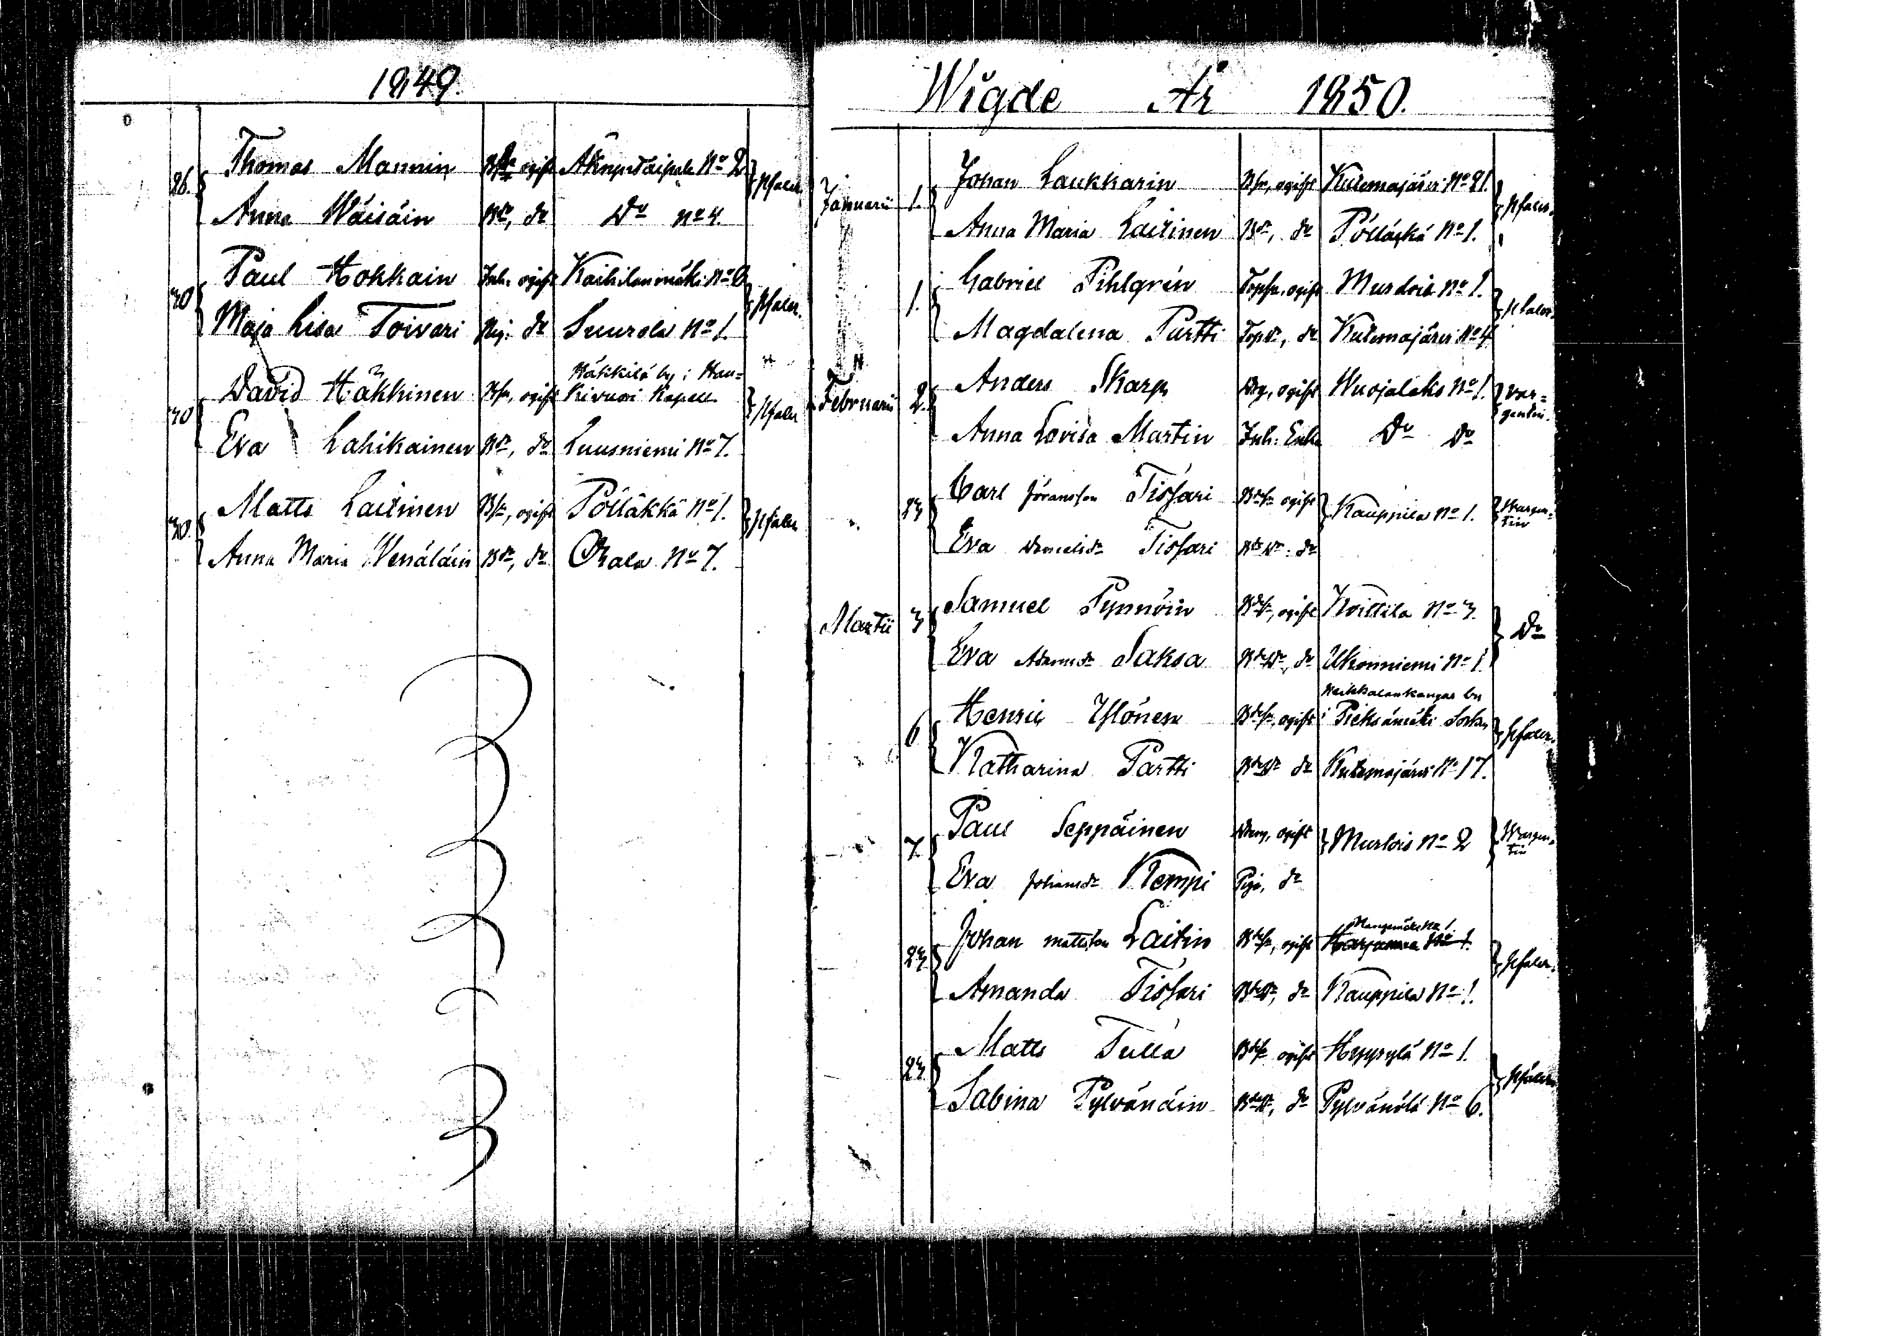 1849.
26. Thomas Mannin Bs ogift Äkryntaipale No 2 Pfaler.
Anna Wäisäin Bdr, do Do No 4.
30 Paul Hokkain Inh. ogift Kaihilanmäki No 6 Pfaler.
Maja Lisa Toivari Pig. do Suurola No 1.
Häkkilä by i Hau=
30 David Häkkinen Bs, ogift kivuori Kapell Pfaler
Eva Lahikainen Bdr, do Luusniemi No 7.
30. Matts Laitinen Bs, ogift Pölläkkä No 1. Pfaler
Anna Maria Wenäläin Bdr, do Orala No 7.
Wigde År 1850.
Januarii 1. Johan Laukkarin Bs, ogift Kutemajärvi No 21. Pfaler.
Anna Maria Laitinen Bdr, do Pölläkkä No 1.
1. Gabriel Pihlgrén Torps. ogift Murtois No 1. Pfaler.
Magdalena Partti Torpdr, do Kutemajärvi No 4
Februarii 2. Anders Skarp Drg, ogift Wuojalaks No 1. War=
gentin.
Anna Lovisa Martin Inh. Enka Do Do
23 Carl Göransson Tissari Bds ogift Kauppila No 1. Wargen=
tin
Eva Danielsdr Tissari Bdedr. do
Martii 3 Samuel Pynnöin Bds, ogift Koittila No 3. Do
Eva Adamsdr Saksa Bdedr, do Ukonniemi No 1.
Heikkalankangas by
6 Henric Ylönen Bds, ogift i Pieksämäki Sockn Pfaler.
Katharina Partti Bdedr do Kutemajärvi No 17.
7. Paul Seppäinen Dreng, ogift Murtois No 2 Wargen=
tin
Eva Johansdr Kempi Piga, do
23 Johan Mattsson Laitin Bds, ogift Harjumaa No 1. Pfaler.
Amanda Tissari Bdedr, do Kauppila No 1.
23 Matts Tulla Bds ogift Hyyrylä No 1. Pfaler
Sabina Pylvänäin Bdedr, do Pylvänälä No 6.